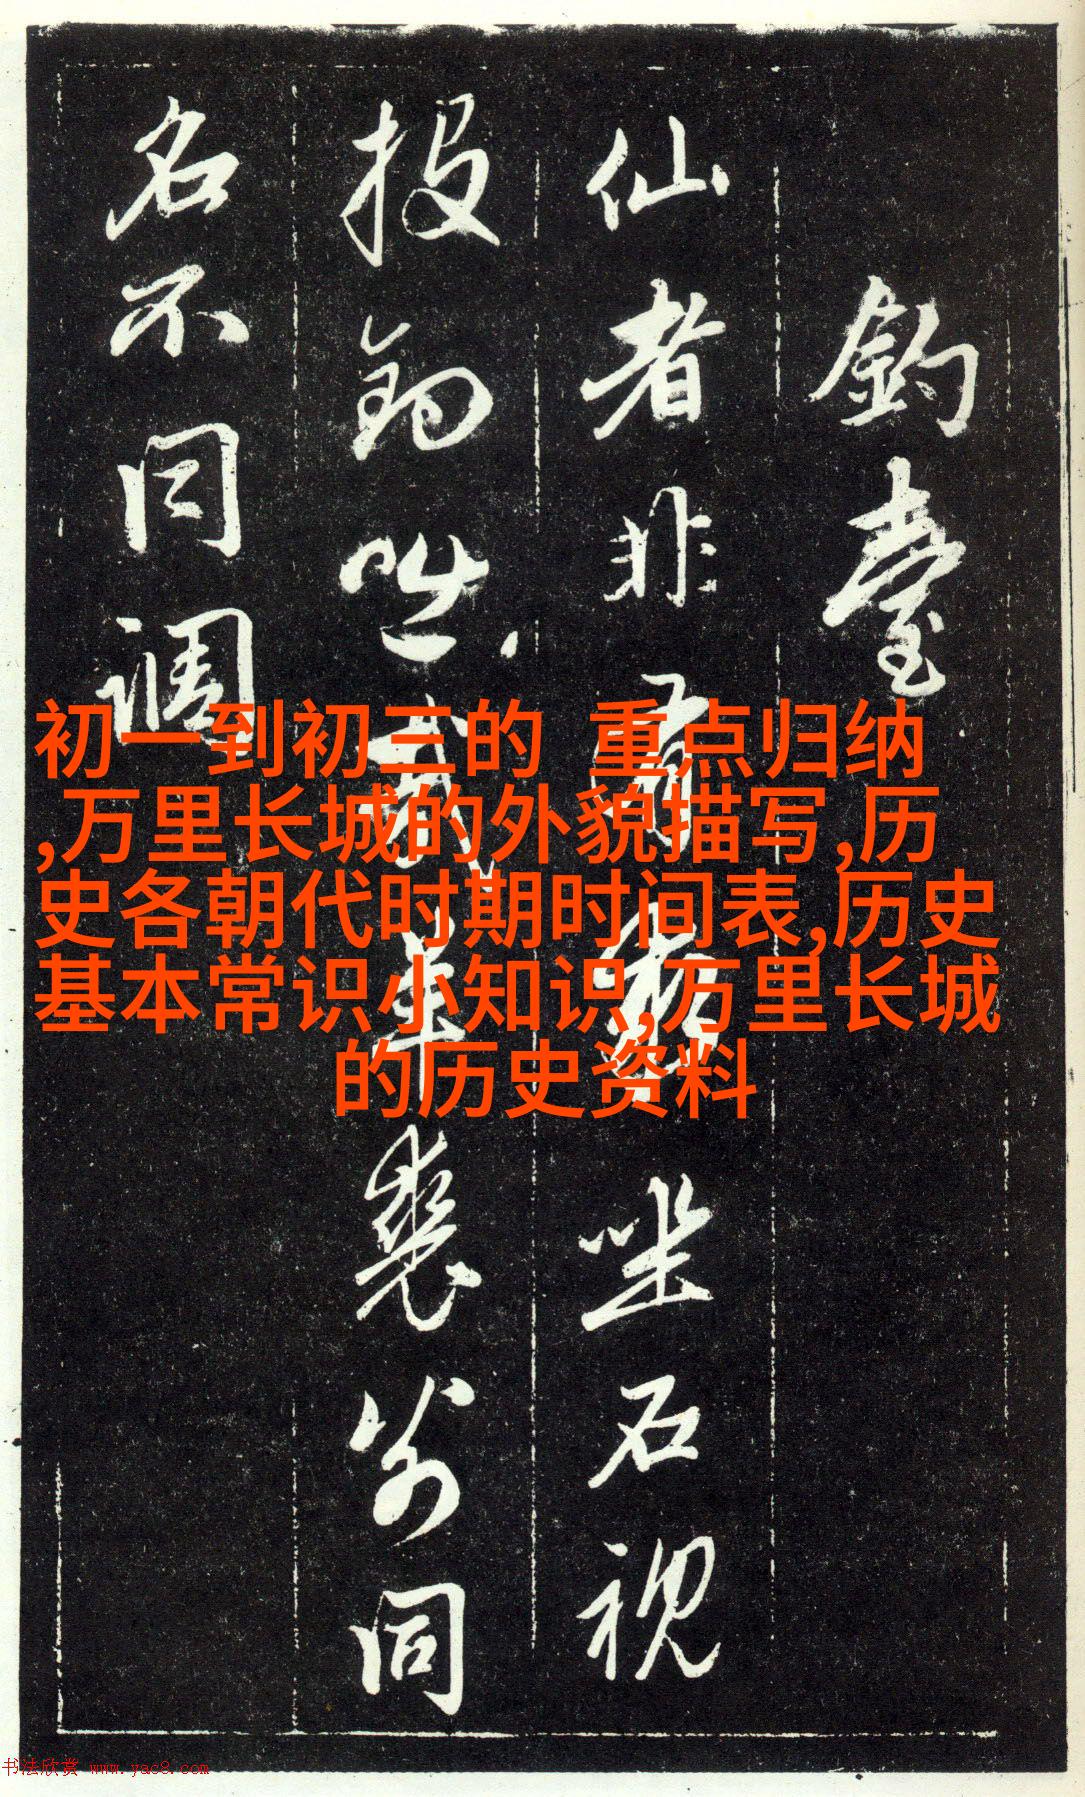 釣臺
仙者非有坐石視
投釣咄羊裘同
名不同調
初一到初三的 重点归纳
,万里长城的外貌描写,历
史各朝代时期时间表,历史
基本常识小知识,万里长城
的历史资料
书法欣赏 www.yac8.com